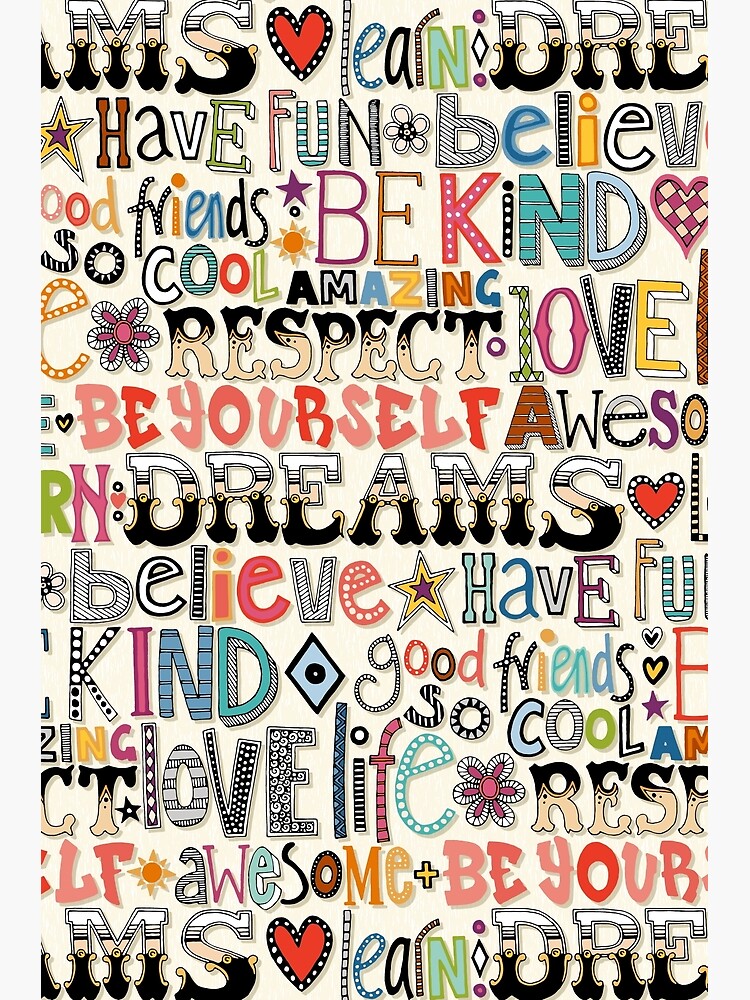 AMS learn: DRE
Have FUN believ
ood friends BE KIND
so COOL AMAZING
e RESPECT LOVE
E BE YOURSELF AWeso
RN: DREAMS L
believe Have FU
E KIND good friends B
so COOL AM
ZING LOVE life
CT RESP
LF awesome + BE YOURS
AMS learn: DRE